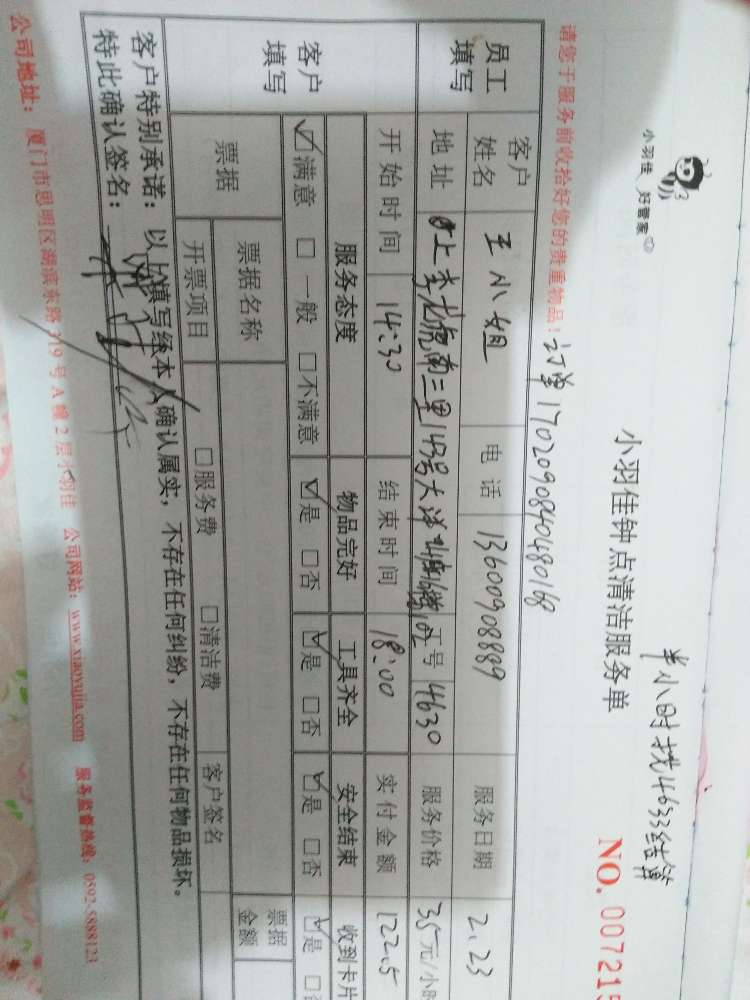 半小时找4633结算
小羽佳 好管家
小羽佳钟点清洁服务单
NO. 007215
请您于服务前收拾好您的贵重物品! 订单1702090840480168
员工填写
客户姓名 王小姐 电话 13600908889 服务日期 2.23
地址 南三里143号大洋 工号 4630 服务价格 35元/小时
开始时间 14:30 结束时间 18:00 实付金额 122.5
客户填写
服务态度 物品完好 工具齐全 安全结束 收到卡片
☑满意 □一般 □不满意 ☑是 □否 ☑是 □否 ☑是 □否 ☑是 □
票据 票据名称 票据金额
开票项目 □服务费 □清洁费 客户签名
客户特别承诺：以上填写经本人确认属实，不存在任何纠纷，不存在任何物品损坏。
特此确认签名：
公司地址：厦门市思明区湖滨东路319号A幢2层小羽佳 公司网站：www.xiaoyujia.com 服务监督热线：0592-5888123